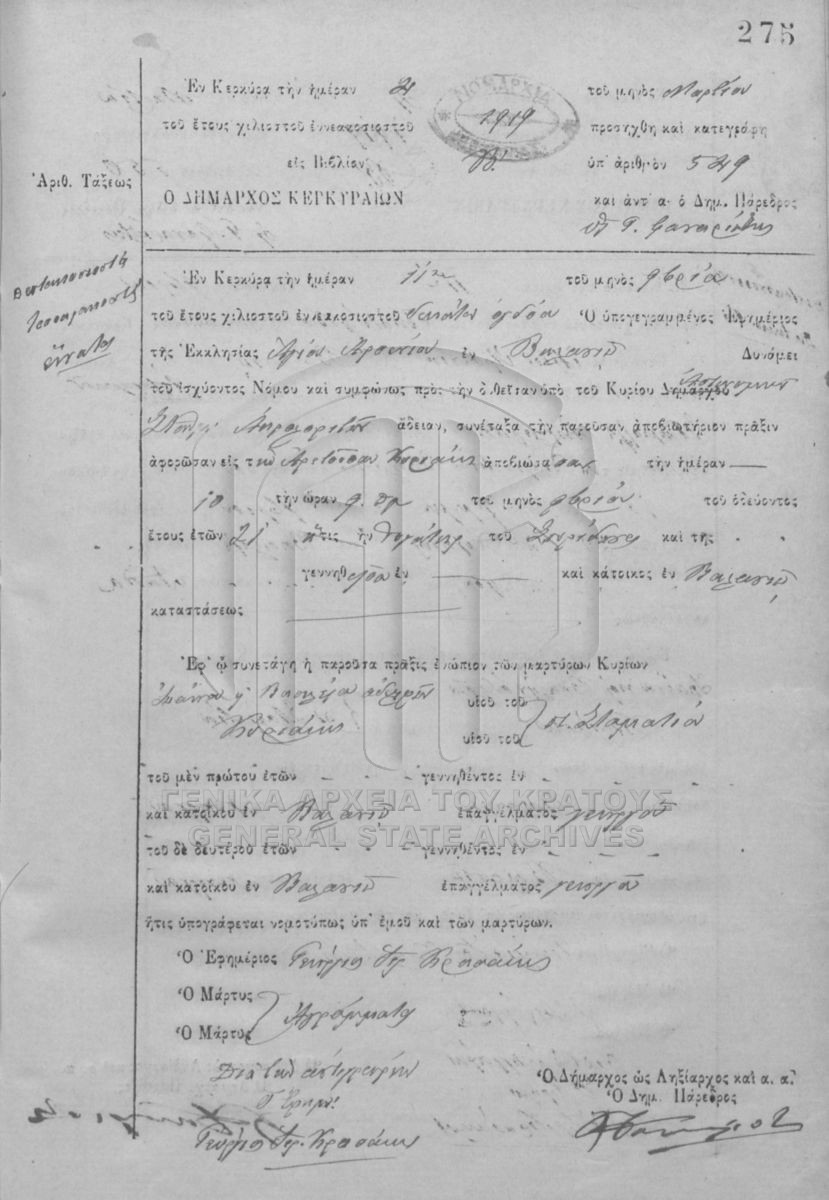 275
Ἐν Κερκύρᾳ τὴν ἡμέραν 21 τοῦ μηνὸς Μαρτίου
τοῦ ἔτους χιλιοστοῦ ἐννεακοσιοστοῦ 1919 προσήχθη καὶ κατεγράφη
εἰς Βιβλίον Β'. ὑπ' ἀριθμὸν 549
Ἀριθ. Τάξεως
Ο ΔΗΜΑΡΧΟΣ ΚΕΡΚΥΡΑΙΩΝ
καὶ ἀντ' α· ὁ Δημ. Πάρεδρος
Ἐν Κερκύρᾳ τὴν ἡμέραν 11ην τοῦ μηνὸς 9βρίου
τεσσαρακοστὸς
ἔννατος
τοῦ ἔτους χιλιοστοῦ ἐννεακοσιοστοῦ δεκάτου ὀγδόου Ὁ ὑπογεγραμμένος Ἐφημέριος
τῆς Ἐκκλησίας Ἁγίου Ἀρσενίου ἐν Βαλανιῷ Δυνάμει
τοῦ ἰσχύοντος Νόμου καὶ συμφώνως πρὸς τὴν δοθεῖσαν ὑπὸ τοῦ Κυρίου Δημάρχου Ἀστυνόμου
ἄδειαν, συνέταξα τὴν παροῦσαν ἀποβιωτήριον πρᾶξιν
ἀφορῶσαν εἰς τὴν Κυριάκη ἀποβιώσασαν τὴν ἡμέραν
10 τὴν ὥραν 9 πμ τοῦ μηνὸς 9βρίου τοῦ ὁδεύοντος
ἔτους ἐτῶν 21 ἥτις ἦν θυγάτηρ τοῦ Σπυρίδωνος καὶ τῆς
γεννηθεῖσα ἐν καὶ κάτοικος ἐν Βαλανιῷ
καταστάσεως
Ἐφ' ᾧ συνετάγη ἡ παροῦσα πρᾶξις ἐνώπιον τῶν μαρτύρων Κυρίων
Ἰωάννου ἢ Βασιλείου ἀδελφῶν υἱοῦ τοῦ
Κυριάκη υἱοῦ τοῦ π. Σταματίου
τοῦ μὲν πρώτου ἐτῶν γεννηθέντος ἐν
ΓΕΝΙΚΑ ΑΡΧΕΙΑ ΤΟΥ ΚΡΑΤΟΥΣ
καὶ κατοίκου ἐν Βαλανιῷ ἐπαγγέλματος γεωργοῦ
GENERAL STATE ARCHIVES
τοῦ δὲ δευτέρου ἐτῶν γεννηθέντος ἐν
καὶ κατοίκου ἐν Βαλανιῷ ἐπαγγέλματος γεωργοῦ
ἥτις ὑπογράφεται νομοτύπως ὑπ' ἐμοῦ καὶ τῶν μαρτύρων.
Ὁ Ἐφημέριος Γεώργιος Ἱερ. Κρασάκης
Ὁ Μάρτυς
Ὁ Μάρτυς Ἀγράμματοι
Διὰ τὴν ἀντιγραφὴν
Ὁ Ἐφημ.
Γεώργιος Ἱερ. Κρασάκης
Ὁ Δήμαρχος ὡς Ληξίαρχος καὶ α. α.
Ὁ Δημ. Πάρεδρος